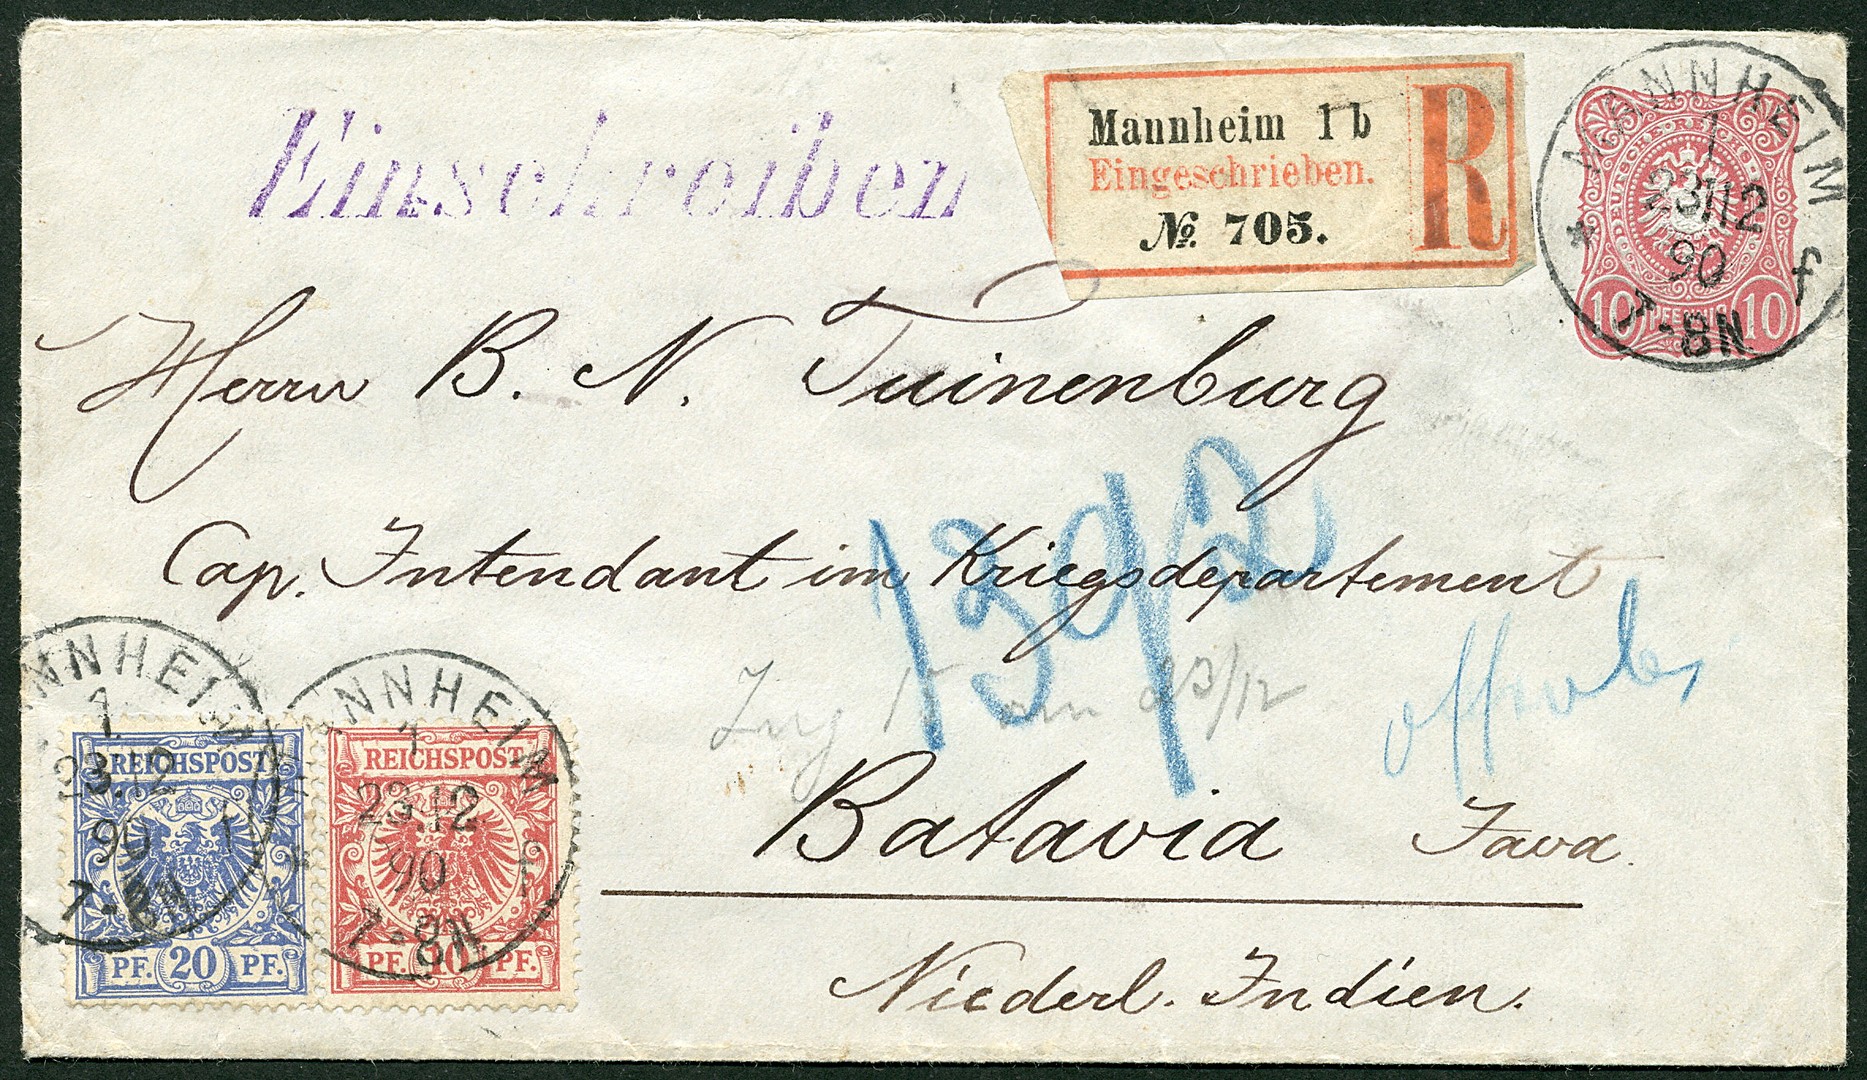 Einschreiben
Mannheim 1 b
Eingeschrieben.
№ 705.
R
MANNHEIM
1
23/12
90
7-8N
f
DEUTSCHE REICHS-POST
10 PFENNIG 10
Herrn B. N. Tuinenburg
Cap. Intendant im Kriegsdepartement
139/2
Zug 15 am 23/12
Batavia Java.
Niederl. Indien.
MANNHEIM
1
23.12
90
7-8N
REICHSPOST
PF. 20 PF.
MANNHEIM
1
23.12
90
7-8N
REICHSPOST
PF. 10 PF.